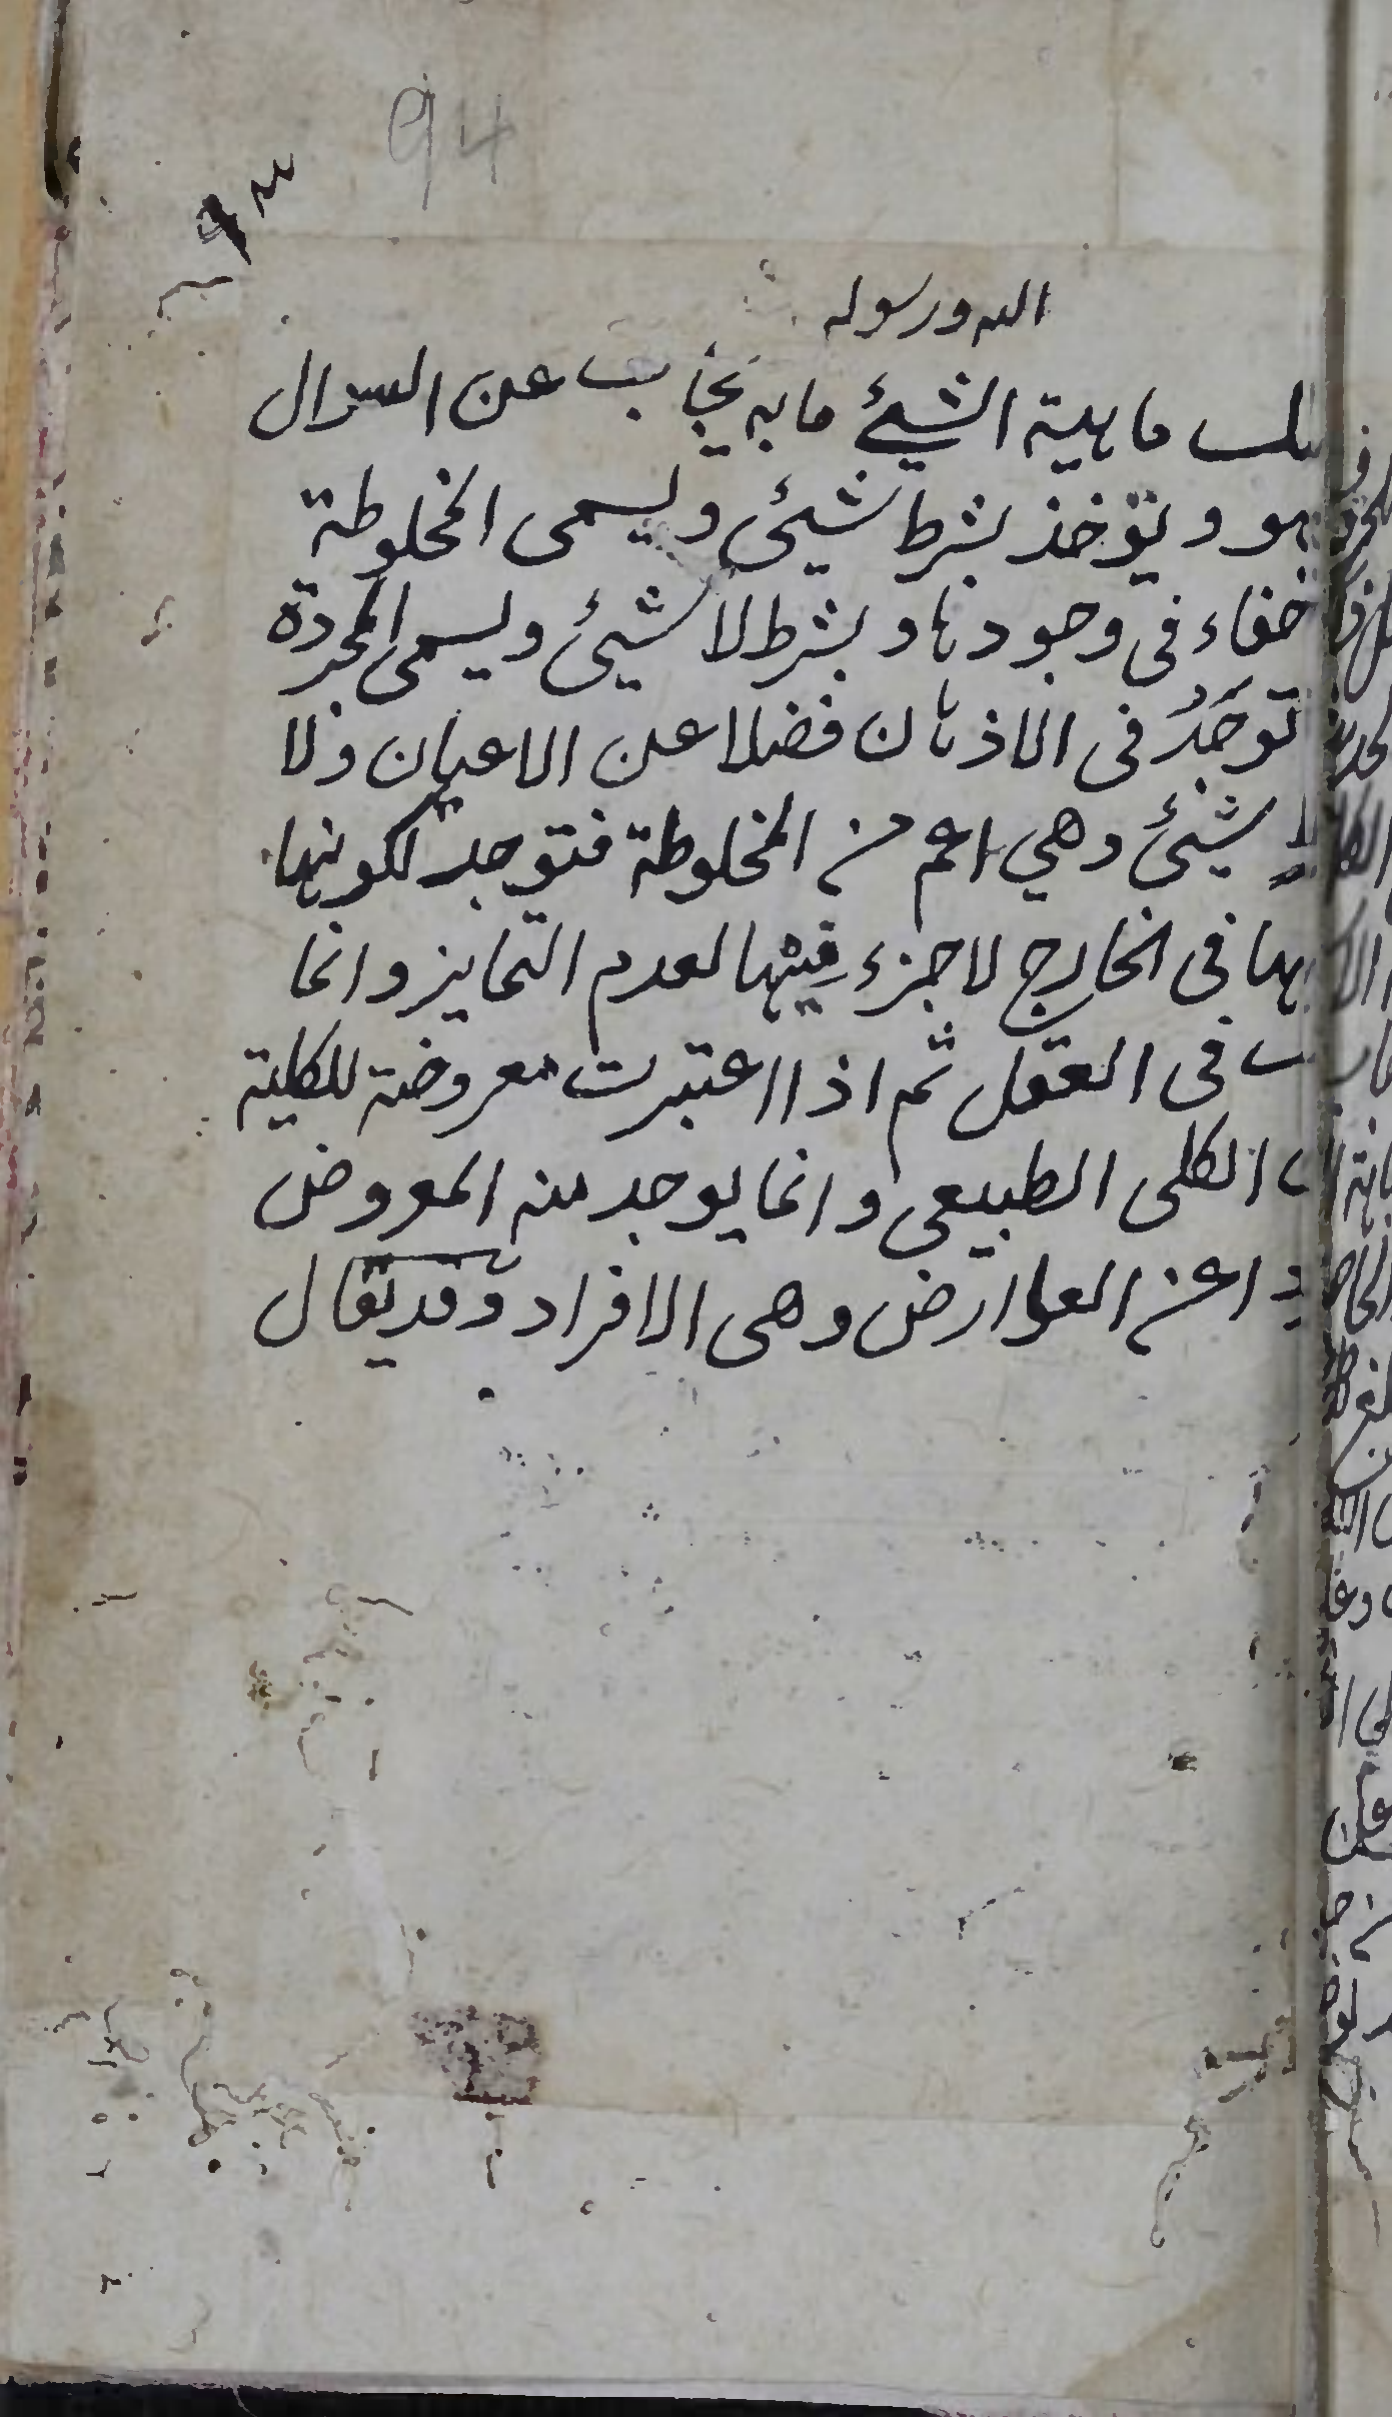 94
٩٣
الله ورسوله
ماهية الشيئ ما به يجاب عن السوال
هو وتؤخذ بشرط شيئ ويسمى المخلوطة
خفاء فى وجودها وبشرط لا شيئ ويسمى المجردة
توجَدُ فى الاذهان فضلا عن الاعيان ولا
شيئ وهي اعم من المخلوطة فتوجد لكونها
فى الخارج لا جزء فيها لعدم التمايز وانما
فى العقل ثم اذا اعتبرت معروضة للكلية
الكلى الطبيعى وانما يوجد منه المعروض
عن العوارض وهى الافراد وقد يقال